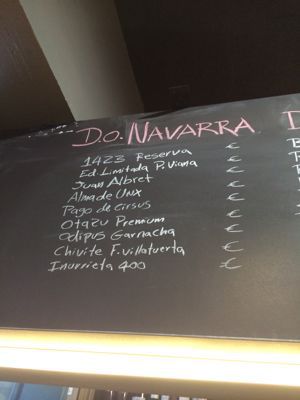 D.O. NAVARRA
1423 Reserva €
Ed Limitada P. Viana €
Juan Albret €
Alma de Unx €
Pago de Cirsus €
Otazu Premium €
Odipus Garnacha €
Chivite F. Villatuerta €
Inurrieta 400 €